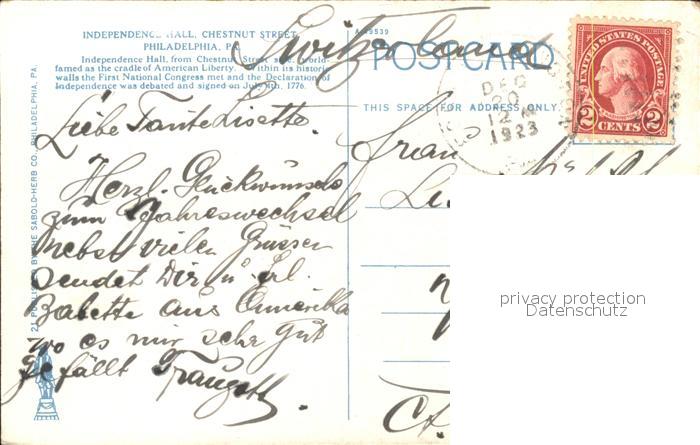 INDEPENDENCE HALL, CHESTNUT STREET,
PHILADELPHIA, PA.
Independence Hall, from Chestnut Street side. World-
famed as the cradle of American Liberty. Within its historic
walls the First National Congress met and the Declaration of
Independence was debated and signed on July 4th, 1776.
Switzerland
POSTCARD
THIS SPACE FOR ADDRESS ONLY.
DEC
20
12 M
1923
UNITED STATES POSTAGE
2 CENTS 2
21 PUBLISHED BY THE SABOLD-HERB CO., PHILADELPHIA, PA.
Liebe Tante Lisette.
Herzl. Glückwunsch
zum Jahreswechsel
nebst vielen Grüssen
sendet Dir u. Frl.
Babette aus Amerika
wo es mir sehr gut
gefällt Traugott.
privacy protection
Datenschutz